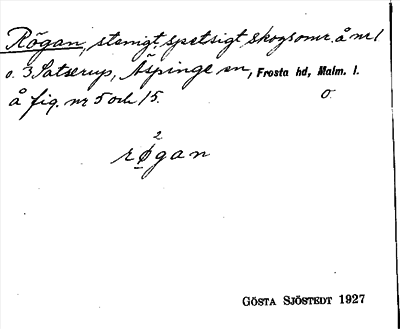 Rögan, stenigt, spetsigt skogsomr. å nr 1
o. 3 Satserup, Äspinge sn, Frosta hd, Malm. l.
å fig. nr 5 och 15. o
2
røgan
GÖSTA SJÖSTEDT 1927